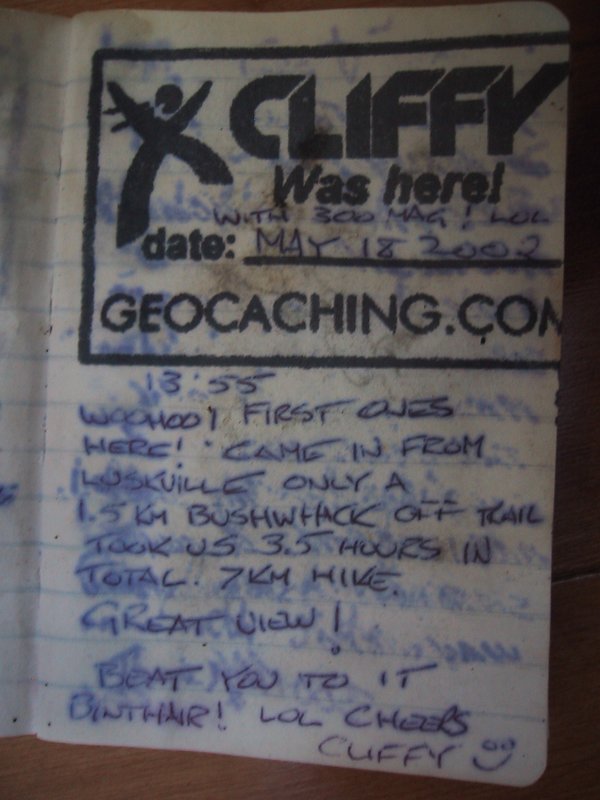 CLIFFY
Was here!
WITH 300 MAG! LOL
date: MAY 18 2002
GEOCACHING.COM
13:55
WOOHOO! FIRST ONES
HERE! CAME IN FROM
LUSKVILLE ONLY A
1.5 KM BUSHWHACK OFF TRAIL
TOOK US 3.5 HOURS IN
TOTAL. 7KM HIKE.
GREAT VIEW!
BEAT YOU TO IT
BINTHAIR! LOL CHEERS
CLIFFY